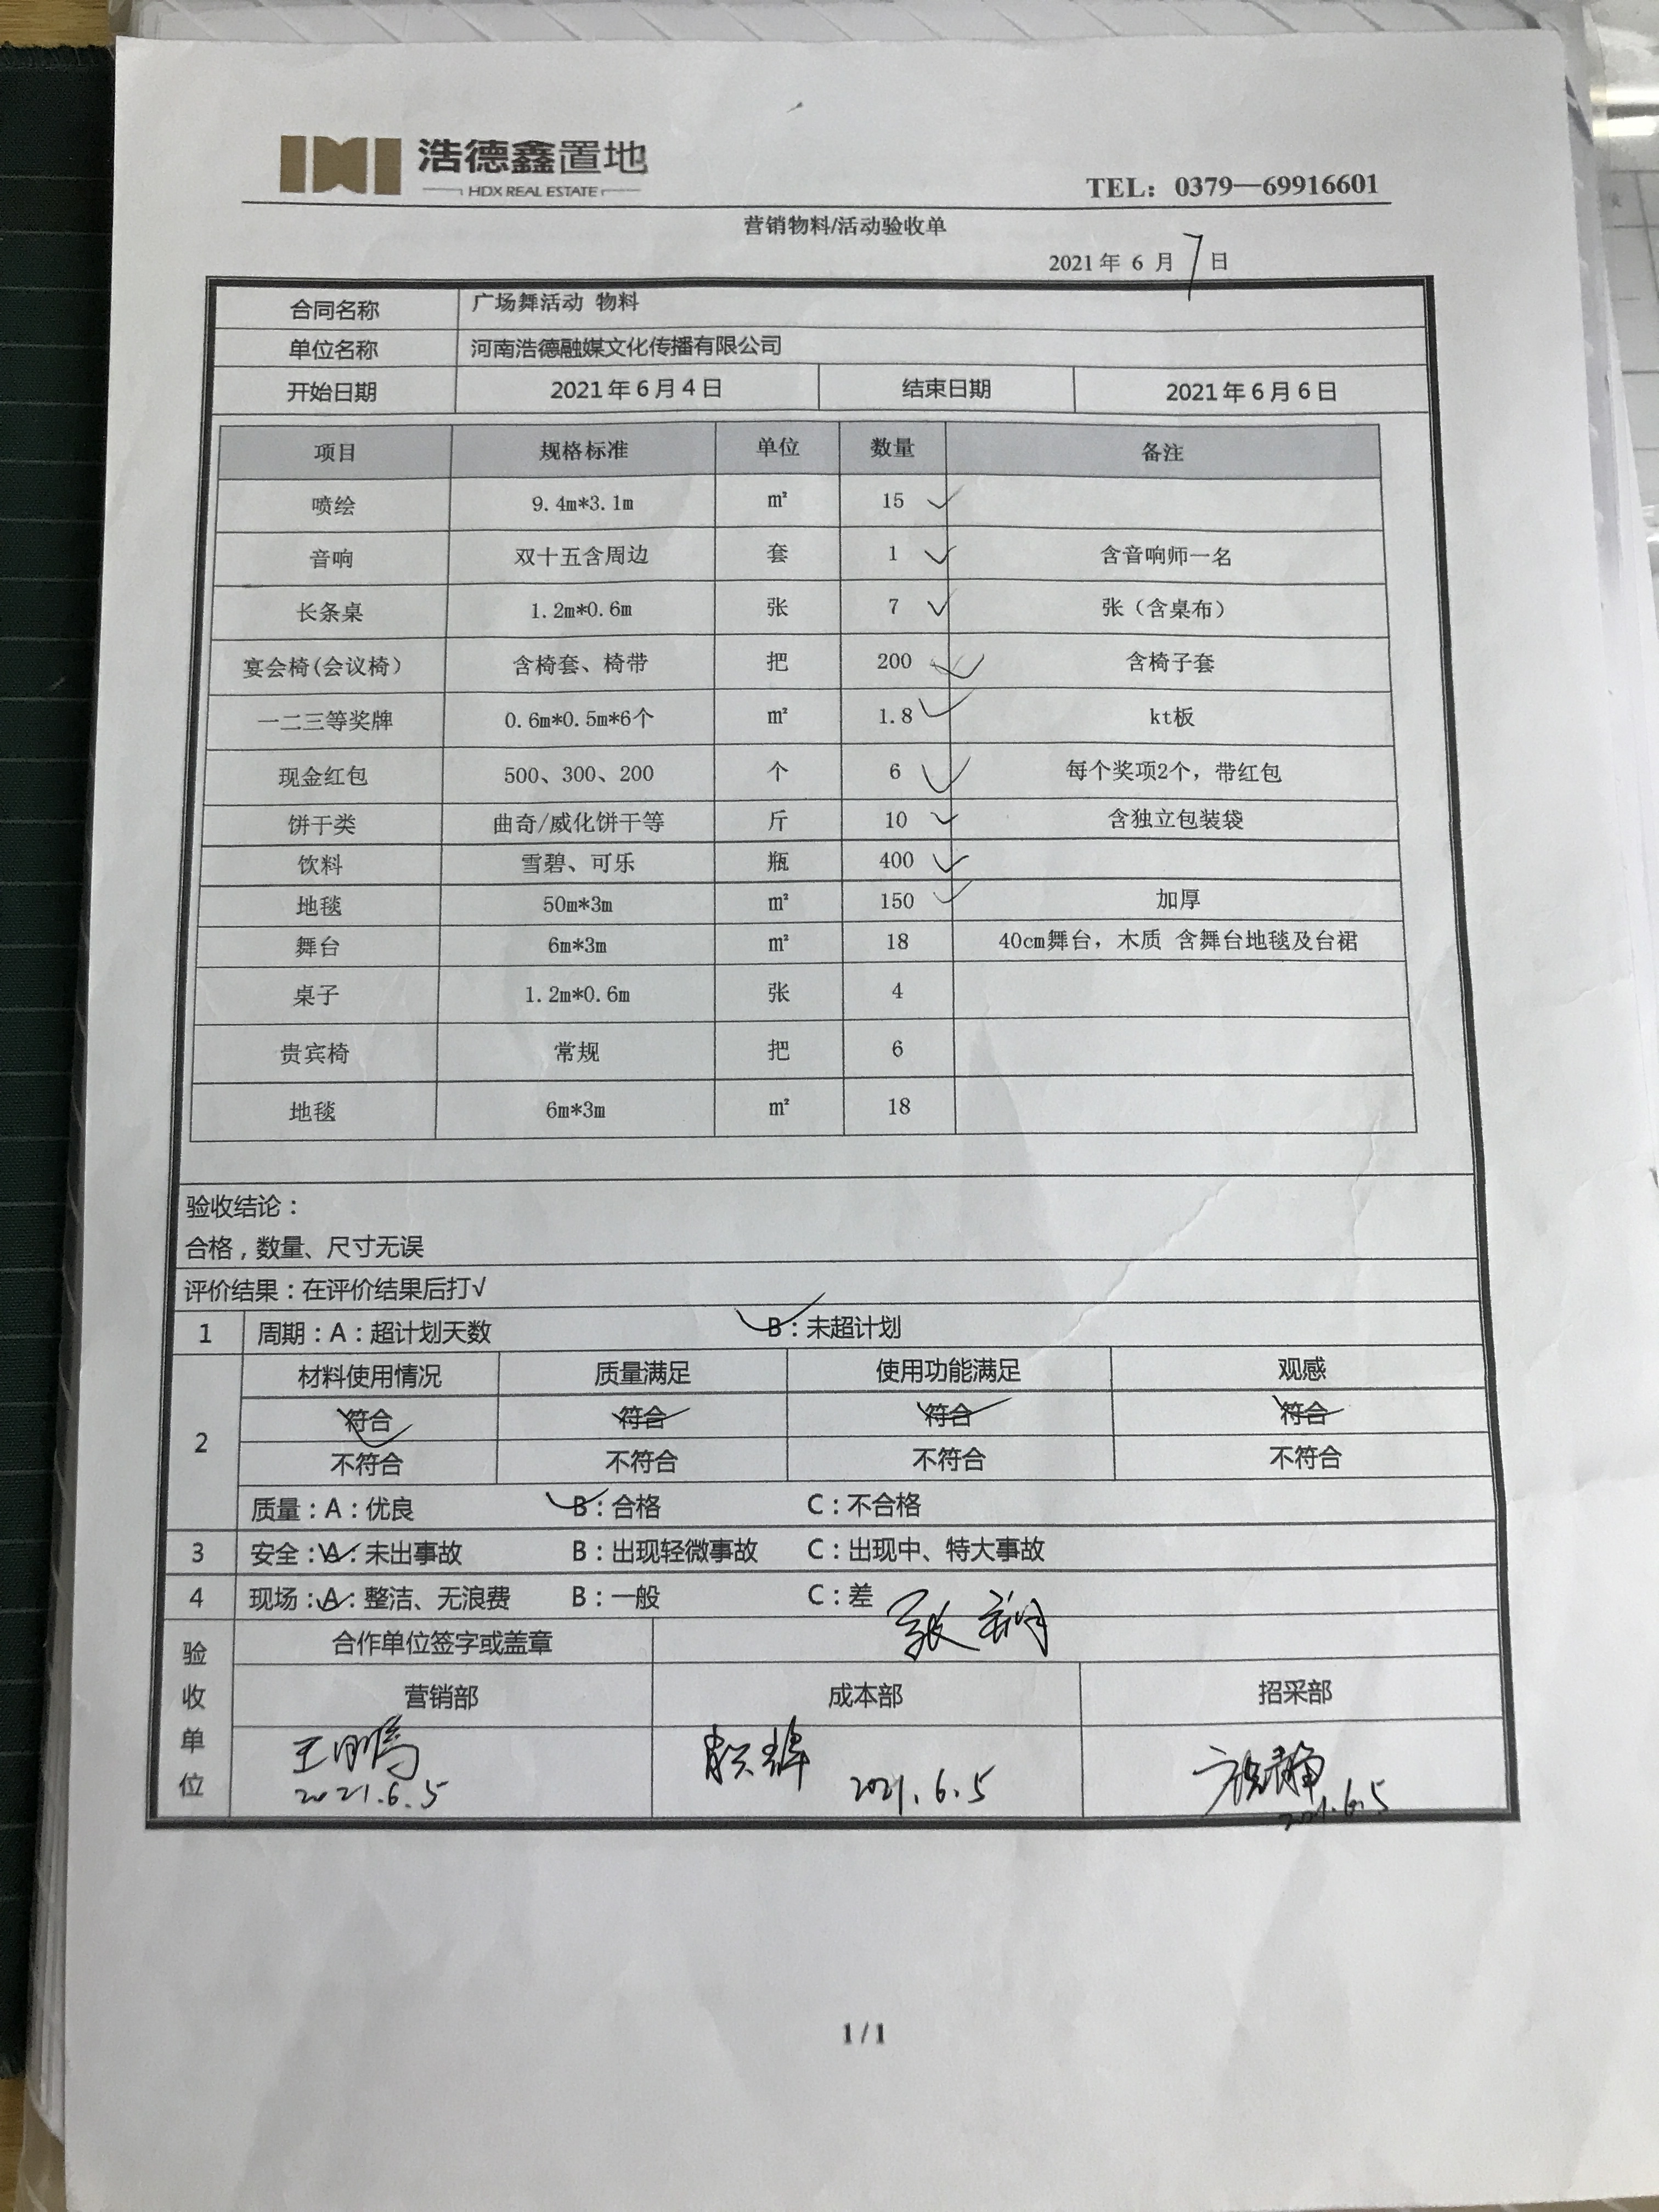 浩德鑫置地
HDX REAL ESTATE
TEL：0379—69916601
营销物料/活动验收单
2021年 6 月 7 日
合同名称 广场舞活动 物料
单位名称 河南浩德融媒文化传播有限公司
开始日期 2021年6月4日 结束日期 2021年6月6日
项目 规格标准 单位 数量 备注
喷绘 9.4m*3.1m m² 15 ✓
音响 双十五含周边 套 1 ✓ 含音响师一名
长条桌 1.2m*0.6m 张 7 ✓ 张（含桌布）
宴会椅(会议椅） 含椅套、椅带 把 200 ✓ 含椅子套
一二三等奖牌 0.6m*0.5m*6个 m² 1.8 ✓ kt板
现金红包 500、300、200 个 6 ✓ 每个奖项2个，带红包
饼干类 曲奇/威化饼干等 斤 10 ✓ 含独立包装袋
饮料 雪碧、可乐 瓶 400 ✓
地毯 50m*3m m² 150 ✓ 加厚
舞台 6m*3m m² 18 40cm舞台，木质 含舞台地毯及台裙
桌子 1.2m*0.6m 张 4
贵宾椅 常规 把 6
地毯 6m*3m m² 18
验收结论：
合格，数量、尺寸无误
评价结果：在评价结果后打√
1 周期：A：超计划天数 ✓B：未超计划
2 材料使用情况 质量满足 使用功能满足 观感
✓符合 ✓符合 ✓符合 ✓符合
不符合 不符合 不符合 不符合
质量：A：优良 ✓B：合格 C：不合格
3 安全：✓A：未出事故 B：出现轻微事故 C：出现中、特大事故
4 现场：✓A：整洁、无浪费 B：一般 C：差
验收单位 合作单位签字或盖章 张
营销部 成本部 招采部
王鹏
2021.6.5 2021.6.5 2021.6.5
1/1